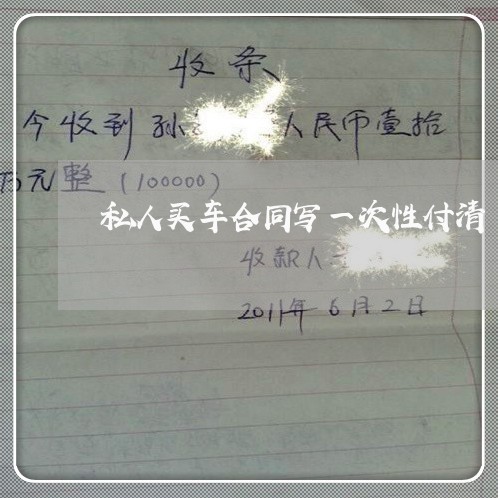 收条
今收到孙 人民币壹拾
万元整(100000)
私人买车合同写一次性付清
收款人
2011年6月2日